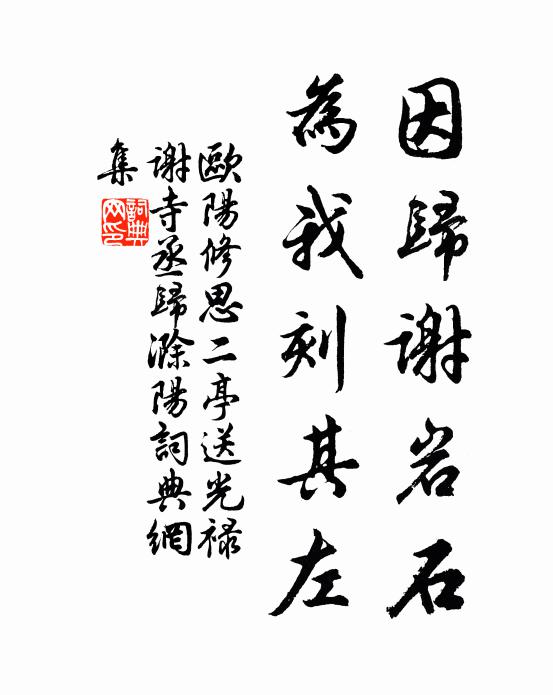 因歸謝岩石
為我刻其左
歐陽修思二亭送光祿
謝寺丞歸滁陽詞典網
集
詞典
网印